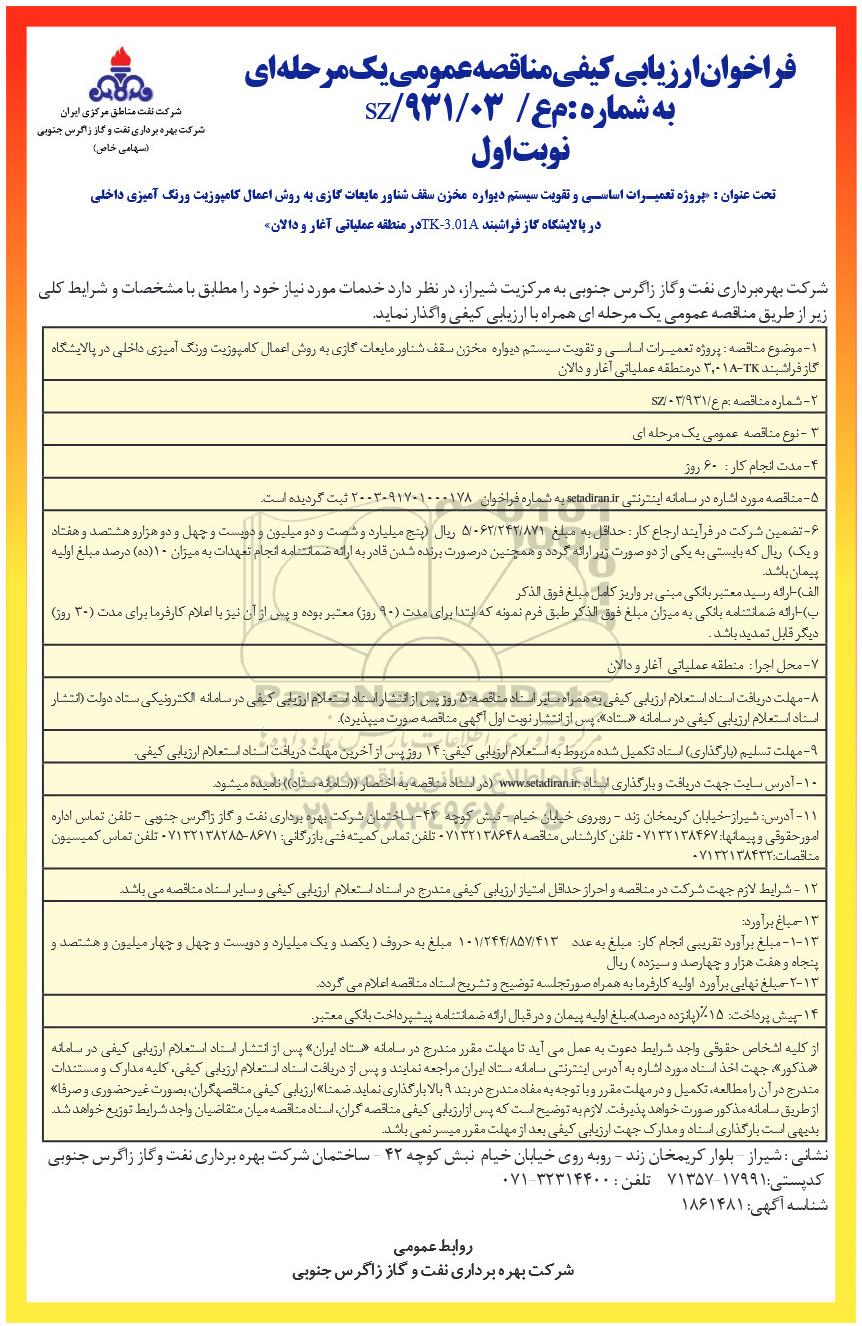 شرکت نفت مناطق مرکزی ایران
شرکت بهره برداری نفت و گاز زاگرس جنوبی
(سهامی خاص)
فراخوان ارزیابی کیفی مناقصه عمومی یک مرحله‌ای
به شماره :م‌ع/ SZ/۹۳۱/۰۳
نوبت اول
تحت عنوان : «پروژه تعمیــرات اساســی و تقویت سیستم دیواره مخزن سقف شناور مایعات گازی به روش اعمال کامپوزیت ورنگ آمیزی داخلی
در پالایشگاه گاز فراشبند TK-3.01A در منطقه عملیاتی آغار و دالان»
شرکت بهره‌برداری نفت وگاز زاگرس جنوبی به مرکزیت شیراز، در نظر دارد خدمات مورد نیاز خود را مطابق با مشخصات و شرایط کلی
زیر از طریق مناقصه عمومی یک مرحله ای همراه با ارزیابی کیفی واگذار نماید.
۱-موضوع مناقصه : پروژه تعمیــرات اساسـی و تقویت سیستم دیواره مخزن سقف شناور مایعات گازی به روش اعمال کامپوزیت ورنگ آمیزی داخلی در پالایشگاه
گاز فراشبند ۳,۰۱A-TK درمنطقه عملیاتی آغار و دالان
۲-شماره مناقصه :م ع/SZ/۰۳/۹۳۱
۳ -نوع مناقصه عمومی یک مرحله ای
۴-مدت انجام کار : ۶۰ روز
۵-مناقصه مورد اشاره در سامانه اینترنتی setadiran.ir به شماره فراخوان ۲۰۰۳۰۹۱۷۰۱۰۰۰۱۷۸ ثبت گردیده است.
۶-تضمین شرکت در فرآیند ارجاع کار : حداقل به مبلغ ۵/۰۶۲/۲۴۲/۸۷۱ ریال (پنج میلیارد و شصت و دو میلیون و دویست و چهل و دو هزارو هشتصد و هفتاد
و یک) ریال که بایستی به یکی از دو صورت زیر ارائه گردد و همچنین درصورت برنده شدن قادر به ارائه ضمانتنامه انجام تعهدات به میزان ۱۰(ده) درصد مبلغ اولیه
پیمان باشد.
الف)-ارائه رسید معتبر بانکی مبنی بر واریز کامل مبلغ فوق الذکر
ب)-ارائه ضمانتنامه بانکی به میزان مبلغ فوق الذکر طبق فرم نمونه که ابتدا برای مدت (۹۰ روز) معتبر بوده و پس از آن نیز با اعلام کارفرما برای مدت (۳۰ روز)
دیگر قابل تمدید باشد .
۷-محل اجرا : منطقه عملیاتی آغار و دالان
۸-مهلت دریافت اسناد استعلام ارزیابی کیفی به همراه سایر اسناد مناقصه:۵ روز پس از انتشار اسناد استعلام ارزیابی کیفی در سامانه الکترونیکی ستاد دولت (انتشار
اسناد استعلام ارزیابی کیفی در سامانه «ستاد»، پس از انتشار نوبت اول آگهی مناقصه صورت میپذیرد).
۹-مهلت تسلیم (بارگذاری) اسناد تکمیل شده مربوط به استعلام ارزیابی کیفی: ۱۴ روز پس از آخرین مهلت دریافت اسناد استعلام ارزیابی کیفی.
۱۰-آدرس سایت جهت دریافت و بارگذاری اسناد: www.setadiran.ir (در اسناد مناقصه به اختصار ((سامانه ستاد)) نامیده میشود.
۱۱-آدرس: شیراز-خیابان کریمخان زند – روبروی خیابان خیام – نبش کوچه ۴۲- ساختمان شرکت بهره برداری نفت و گاز زاگرس جنوبی – تلفن تماس اداره
امورحقوقی و پیمانها: ۰۷۱۳۲۱۳۸۴۶۷ تلفن کارشناس مناقصه ۰۷۱۳۲۱۳۸۶۴۸ تلفن تماس کمیته فنی بازرگانی: ۸۶۷۱-۰۷۱۳۲۱۳۸۲۸۵ تلفن تماس کمیسیون
مناقصات:۰۷۱۳۲۱۳۸۴۳۲
۱۲ – شرایط لازم جهت شرکت در مناقصه و احراز حداقل امتیاز ارزیابی کیفی مندرج در اسناد استعلام ارزیابی کیفی و سایر اسناد مناقصه می باشد.
۱۳-مباغ برآورد:
۱-۱۳- مبلغ برآورد تقریبی انجام کار: مبلغ به عدد ۱۰۱/۲۴۴/۸۵۷/۴۱۳ مبلغ به حروف ( یکصد و یک میلیارد و دویست و چهل و چهار میلیون و هشتصد و
پنجاه و هفت هزار و چهارصد و سیزده ) ریال
۲-۱۳-مبلغ نهایی برآورد اولیه کارفرما به همراه صورتجلسه توضیح و تشریح اسناد مناقصه اعلام می گردد.
۱۴-پیش پرداخت: ۱۵٪(پانزده درصد)مبلغ اولیه پیمان و در قبال ارائه ضمانتنامه پیشپرداخت بانکی معتبر.
از کلیه اشخاص حقوقی واجد شرایط دعوت به عمل می آید تا مهلت مقرر مندرج در سامانه «ستاد ایران» پس از انتشار اسناد استعلام ارزیابی کیفی در سامانه
«مذکور»، جهت اخذ اسناد مورد اشاره به آدرس اینترنتی سامانه ستاد ایران مراجعه نمایند و پس از دریافت اسناد استعلام ارزیابی کیفی، کلیه مدارک و مستندات
مندرج در آن را مطالعه، تکمیل و در مهلت مقرر و با توجه به مفاد مندرج در بند ۹ بالا بارگذاری نماید. ضمنا» ارزیابی کیفی مناقصهگران، بصورت غیرحضوری و صرفا»
از طریق سامانه مذکور صورت خواهد پذیرفت. لازم به توضیح است که پس ازارزیابی کیفی مناقصه گران، اسناد مناقصه میان متقاضیان واجد شرایط توزیع خواهد شد.
بدیهی است بارگذاری اسناد و مدارک جهت ارزیابی کیفی بعد از مهلت مقرر میسر نمی باشد.
نشانی : شیراز – بلوار کریمخان زند – روبه روی خیابان خیام نبش کوچه ۴۲ – ساختمان شرکت بهره برداری نفت وگاز زاگرس جنوبی
کدپستی:۱۷۹۹۱-۷۱۳۵۷ تلفن : ۳۲۳۱۴۴۰۰-۰۷۱
شناسه آگهی: ۱۸۶۱۴۸۱
روابط عمومی
شرکت بهره برداری نفت و گاز زاگرس جنوبی
ParsNamadData
پایگاه اطلاع رسانی مناقصه و مزایده
۰۲۱-۸۸۳۴۹۶۷۰-۵